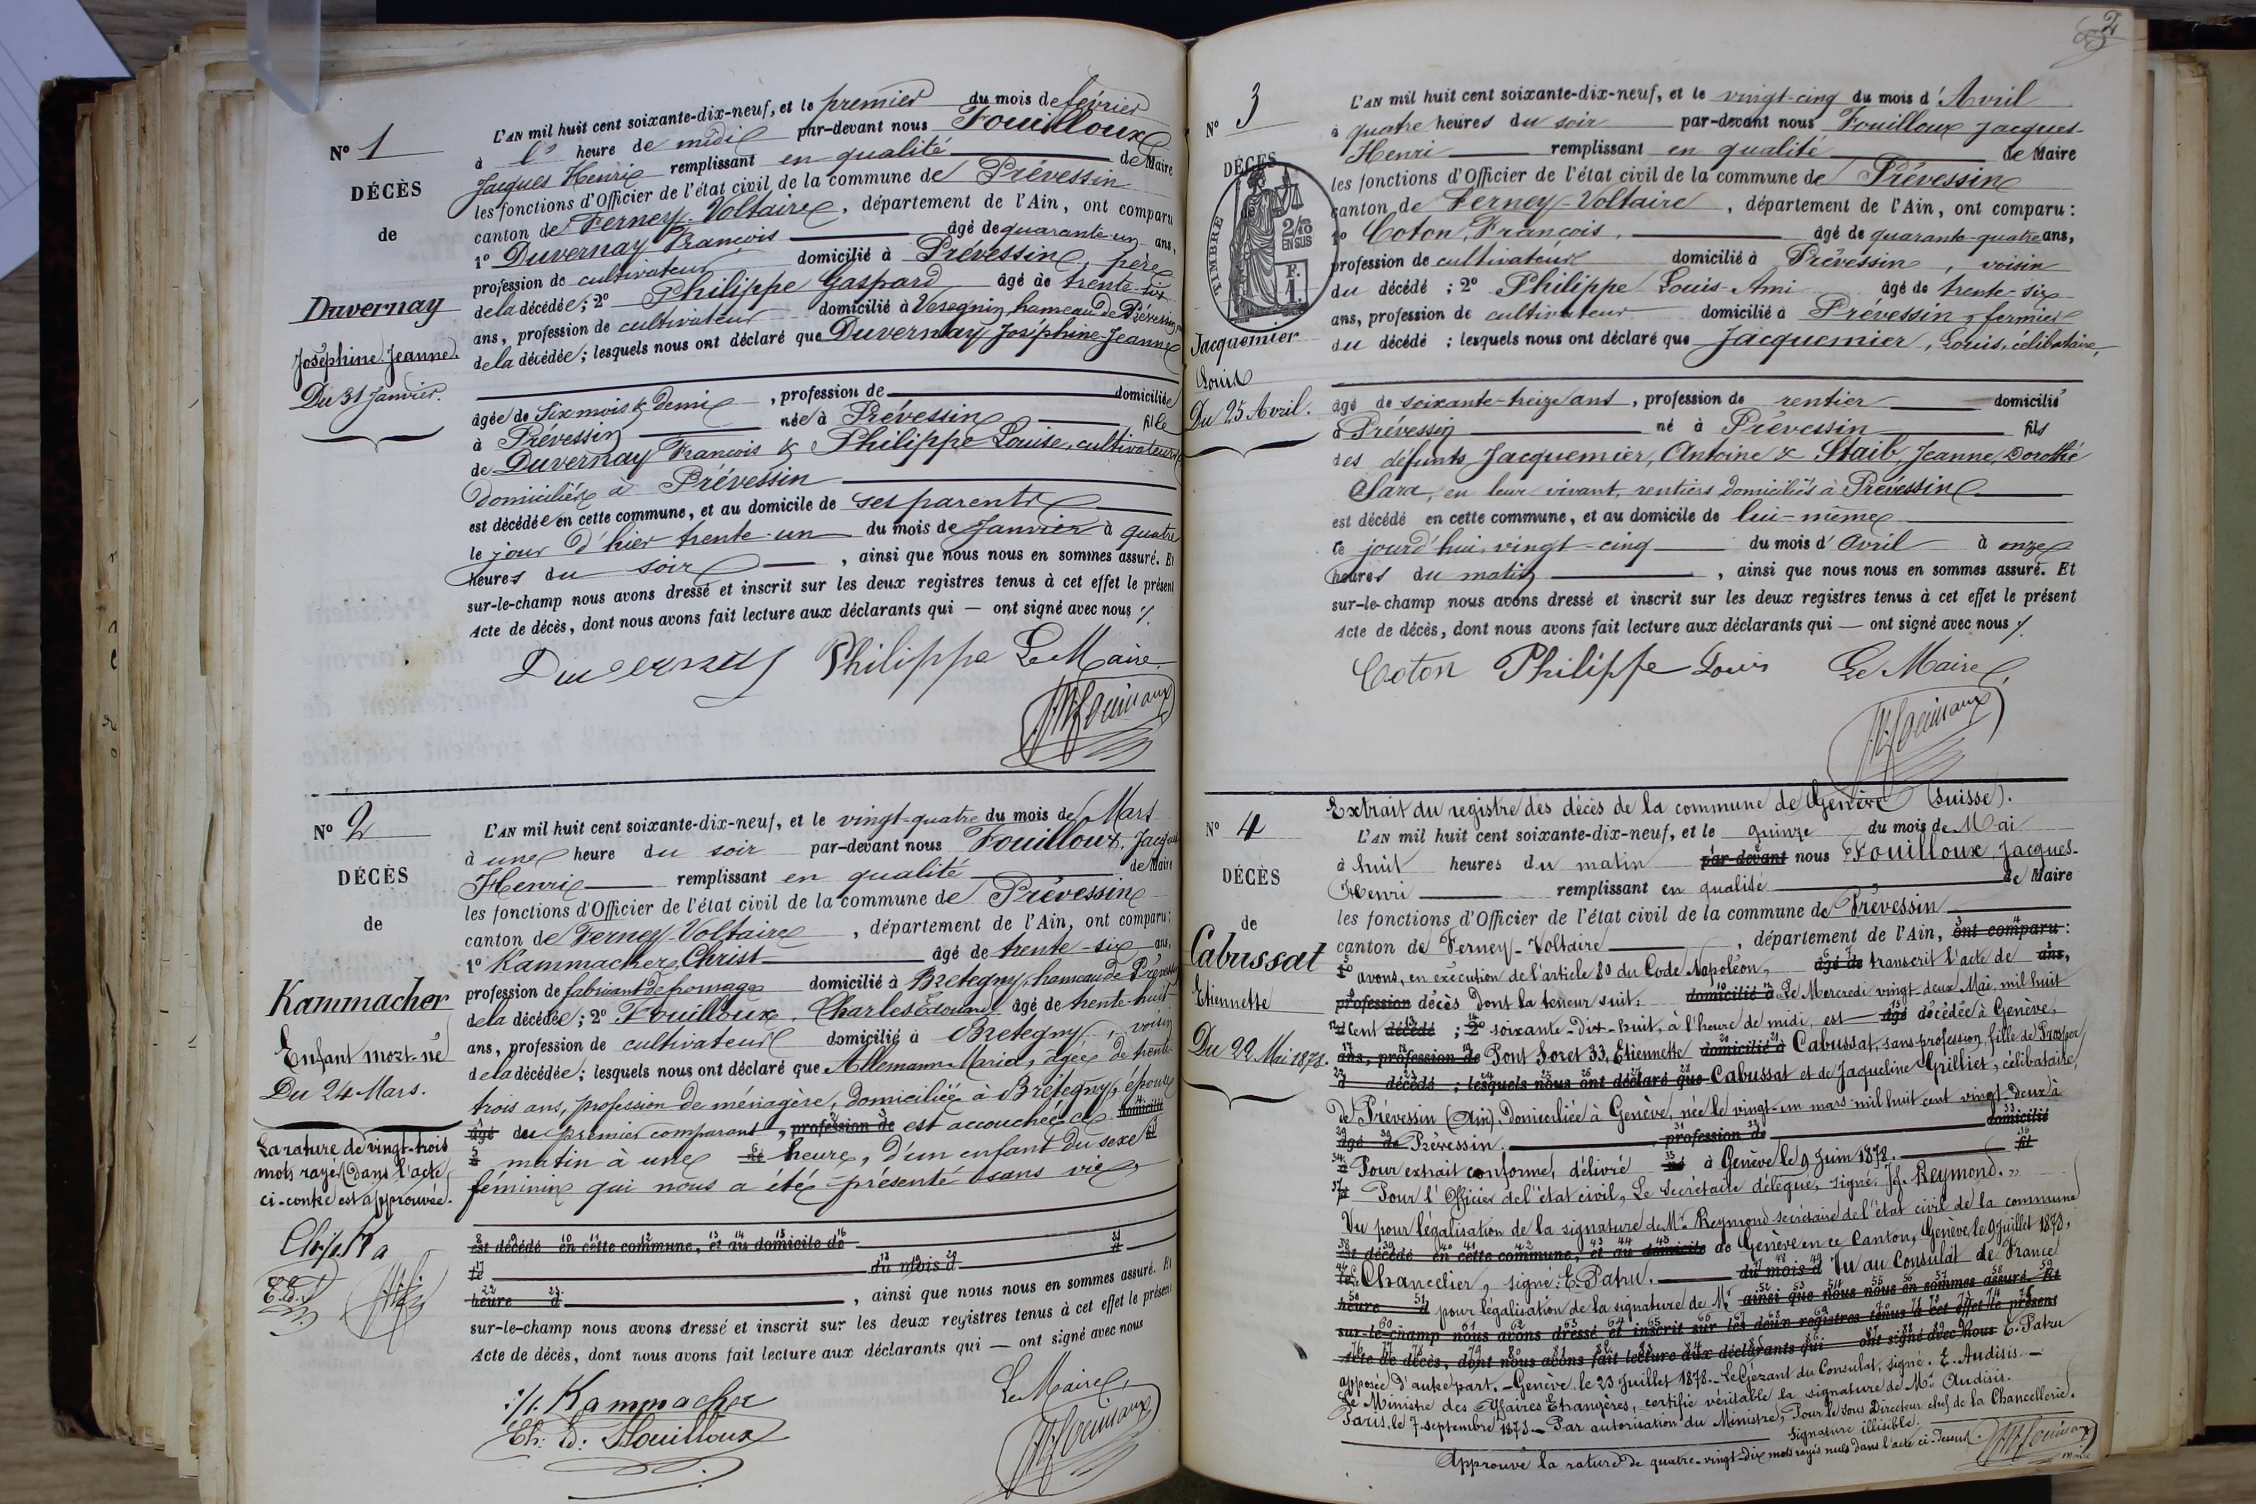 N° 1
DÉCÈS
de
Duvernay
Joséphine Jeanne.
Du 31 Janvier.
L'AN mil huit cent soixante-dix-neuf, et le premier du mois de février
à l' heure de midi par-devant nous Fouilloux
Jacques Henri remplissant en qualité de Maire
les fonctions d'Officier de l'état civil de la commune de Prévessin
canton de Ferney-Voltaire, département de l'Ain, ont comparu
1° Duvernay François âgé de quarante-un ans,
profession de cultivateur domicilié à Prévessin, père
de la décédée; 2° Philippe Gaspard âgé de trente-six
ans, profession de cultivateur domicilié à Vesegnin hameau de Prévessin
de la décédée; lesquels nous ont déclaré que Duvernay Joséphine-Jeanne
âgée de Six mois & demi, profession de domiciliée
à Prévessin née à Prévessin fille
de Duvernay François & Philippe Louise, cultivateurs
domiciliés à Prévessin
est décédée en cette commune, et au domicile de ses parents
le jour d'hier trente-un du mois de Janvier à quatre
heures du soir, ainsi que nous nous en sommes assuré. Et
sur-le-champ nous avons dressé et inscrit sur les deux registres tenus à cet effet le présent
Acte de décès, dont nous avons fait lecture aux déclarants qui — ont signé avec nous ./.
Duvernay Philippe Le Maire
N° 2
DÉCÈS
de
Kammacher
Enfant mort-né
Du 24 Mars.
La rature de vingt-trois
mots rayés dans l'acte
ci-contre est approuvée.
L'AN mil huit cent soixante-dix-neuf, et le vingt-quatre du mois de Mars
à une heure du soir par-devant nous Fouilloux, Jacques
Henri remplissant en qualité de Maire
les fonctions d'Officier de l'état civil de la commune de Prévessin
canton de Ferney-Voltaire, département de l'Ain, ont comparu:
1° Kammacher, Christ âgé de trente-six ans,
profession de fabricant de fromages domicilié à Bretegny, hameau de Prévessin
de la décédée; 2° Fouilloux, Charles Edouard âgé de trente-huit
ans, profession de cultivateur domicilié à Bretegny, voisin
de la décédée; lesquels nous ont déclaré que Allemann Maria, âgée de trente-
trois ans, profession de ménagère, domiciliée à Bretegny, épouse
âgé du premier comparant, profession de est accouchée ce domicilié
à matin à une né heure, d'un enfant du sexe fil
féminin qui nous a été présenté sans vie,
est décédé en cette commune, et au domicile de
le du mois d à
heure d, ainsi que nous nous en sommes assuré. Et
sur-le-champ nous avons dressé et inscrit sur les deux registres tenus à cet effet le présent
Acte de décès, dont nous avons fait lecture aux déclarants qui — ont signé avec nous
./. Kammacher Le Maire,
Ch: Ed: Fouilloux
2
N° 3
DÉCÈS
de
TIMBRE
2/10
EN SUS
F.
1.
Jacquemier
Louis
Du 25 Avril.
L'AN mil huit cent soixante-dix-neuf, et le vingt-cinq du mois d'Avril
à quatre heures du soir par-devant nous Fouilloux Jacques-
Henri remplissant en qualité de Maire
les fonctions d'Officier de l'état civil de la commune de Prévessin
canton de Ferney-Voltaire, département de l'Ain, ont comparu:
1° Coton, François, âgé de quarante-quatre ans,
profession de cultivateur domicilié à Prévessin, voisin
du décédé; 2° Philippe Louis-Ami âgé de trente-six
ans, profession de cultivateur domicilié à Prévessin, fermier
du décédé; lesquels nous ont déclaré que Jacquemier, Louis, célibataire,
âgé de soixante-treize ans, profession de rentier domicilié
à Prévessin né à Prévessin fils
des défunts Jacquemier, Antoine & Staib, Jeanne, Dorothé
Clara, en leur vivant, rentiers domiciliés à Prévessin
est décédé en cette commune, et au domicile de lui-même
le jourd'hui, vingt-cinq du mois d'Avril à onze
heures du matin, ainsi que nous nous en sommes assuré. Et
sur-le-champ nous avons dressé et inscrit sur les deux registres tenus à cet effet le présent
Acte de décès, dont nous avons fait lecture aux déclarants qui — ont signé avec nous ./.
Coton Philippe Louis Le Maire
N° 4
DÉCÈS
de
Cabussat
Etiennette
Du 22 Mai 1878.
Extrait du registre des décès de la commune de Genève (Suisse).
L'AN mil huit cent soixante-dix-neuf, et le quinze du mois de Mai
à huit heures du matin par-devant nous Fouilloux, Jacques-
Henri remplissant en qualité de Maire
les fonctions d'Officier de l'état civil de la commune de Prévessin
canton de Ferney-Voltaire, département de l'Ain, ont comparu:
1° avons, en exécution de l'article 80 du Code Napoléon, âgé de transcrit l'acte de ans,
profession décès dont la teneur suit: domicilié à Le Mercredi vingt-deux Mai, mil huit
d cent décédé; 2° soixante-dix-huit, à l'heure de midi, est âgé décédée à Genève,
ans, profession de Pont Soret 33, Etiennette domicilié à Cabussat, sans profession, fille de Prosper
d décédé; lesquels nous ont déclaré que Cabussat et de Jaqueline Grilliet, célibataire,
de Prévessin (Ain), domiciliée à Genève, née le vingt-un mars mil huit cent vingt-deux à
âgé de Prévessin. profession de domicilié
à Pour extrait conforme, délivré né à Genève le 9 juin 1878. fil
de Pour l'Officier de l'état civil, Le Secrétaire délégué, signé: Jq. Reymond.
Vu pour légalisation de la signature de Mr. Reymond secrétaire de l'état civil de la commune
est décédé en cette commune, et au domicile de Genève en ce Canton, Genève, le 9 juillet 1878,
le Chancelier, signé: E. Patru. du mois d Vu au Consulat de France
heure d pour légalisation de la signature de Mr ainsi que nous nous en sommes assuré. Et
sur-le-champ nous avons dressé et inscrit sur les deux registres tenus à cet effet le présent
Acte de décès, dont nous avons fait lecture aux déclarants qui ont signé avec nous E. Patru
apposée d'autre part. — Genève le 23 Juillet 1878. — Le Gérant du Consulat, signé. E. Audisis. —
Le Ministre des Affaires Etrangères, certifie véritable la signature de Mr. Audisis.
Paris, le 7 septembre 1878. — Par autorisation du Ministre, Pour le sous Directeur chef de la Chancellerie.
Signature illisible.
Approuvé la rature de quatre-vingt-dix mots rayés nuls dans l'acte ci-dessus.